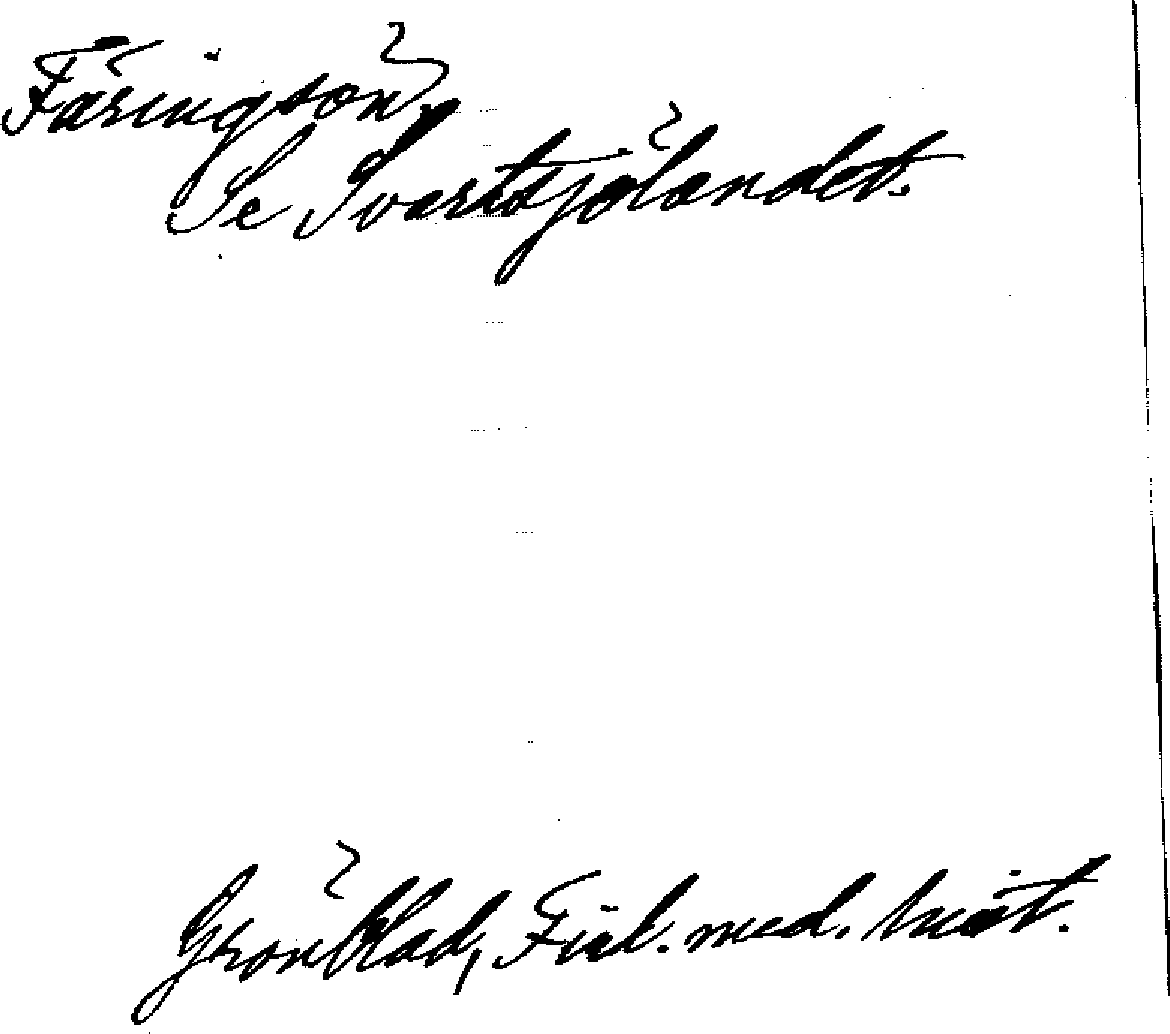 Färingsön,
Se Svartsjölandet.
Grönblad, Finl. med. hist.